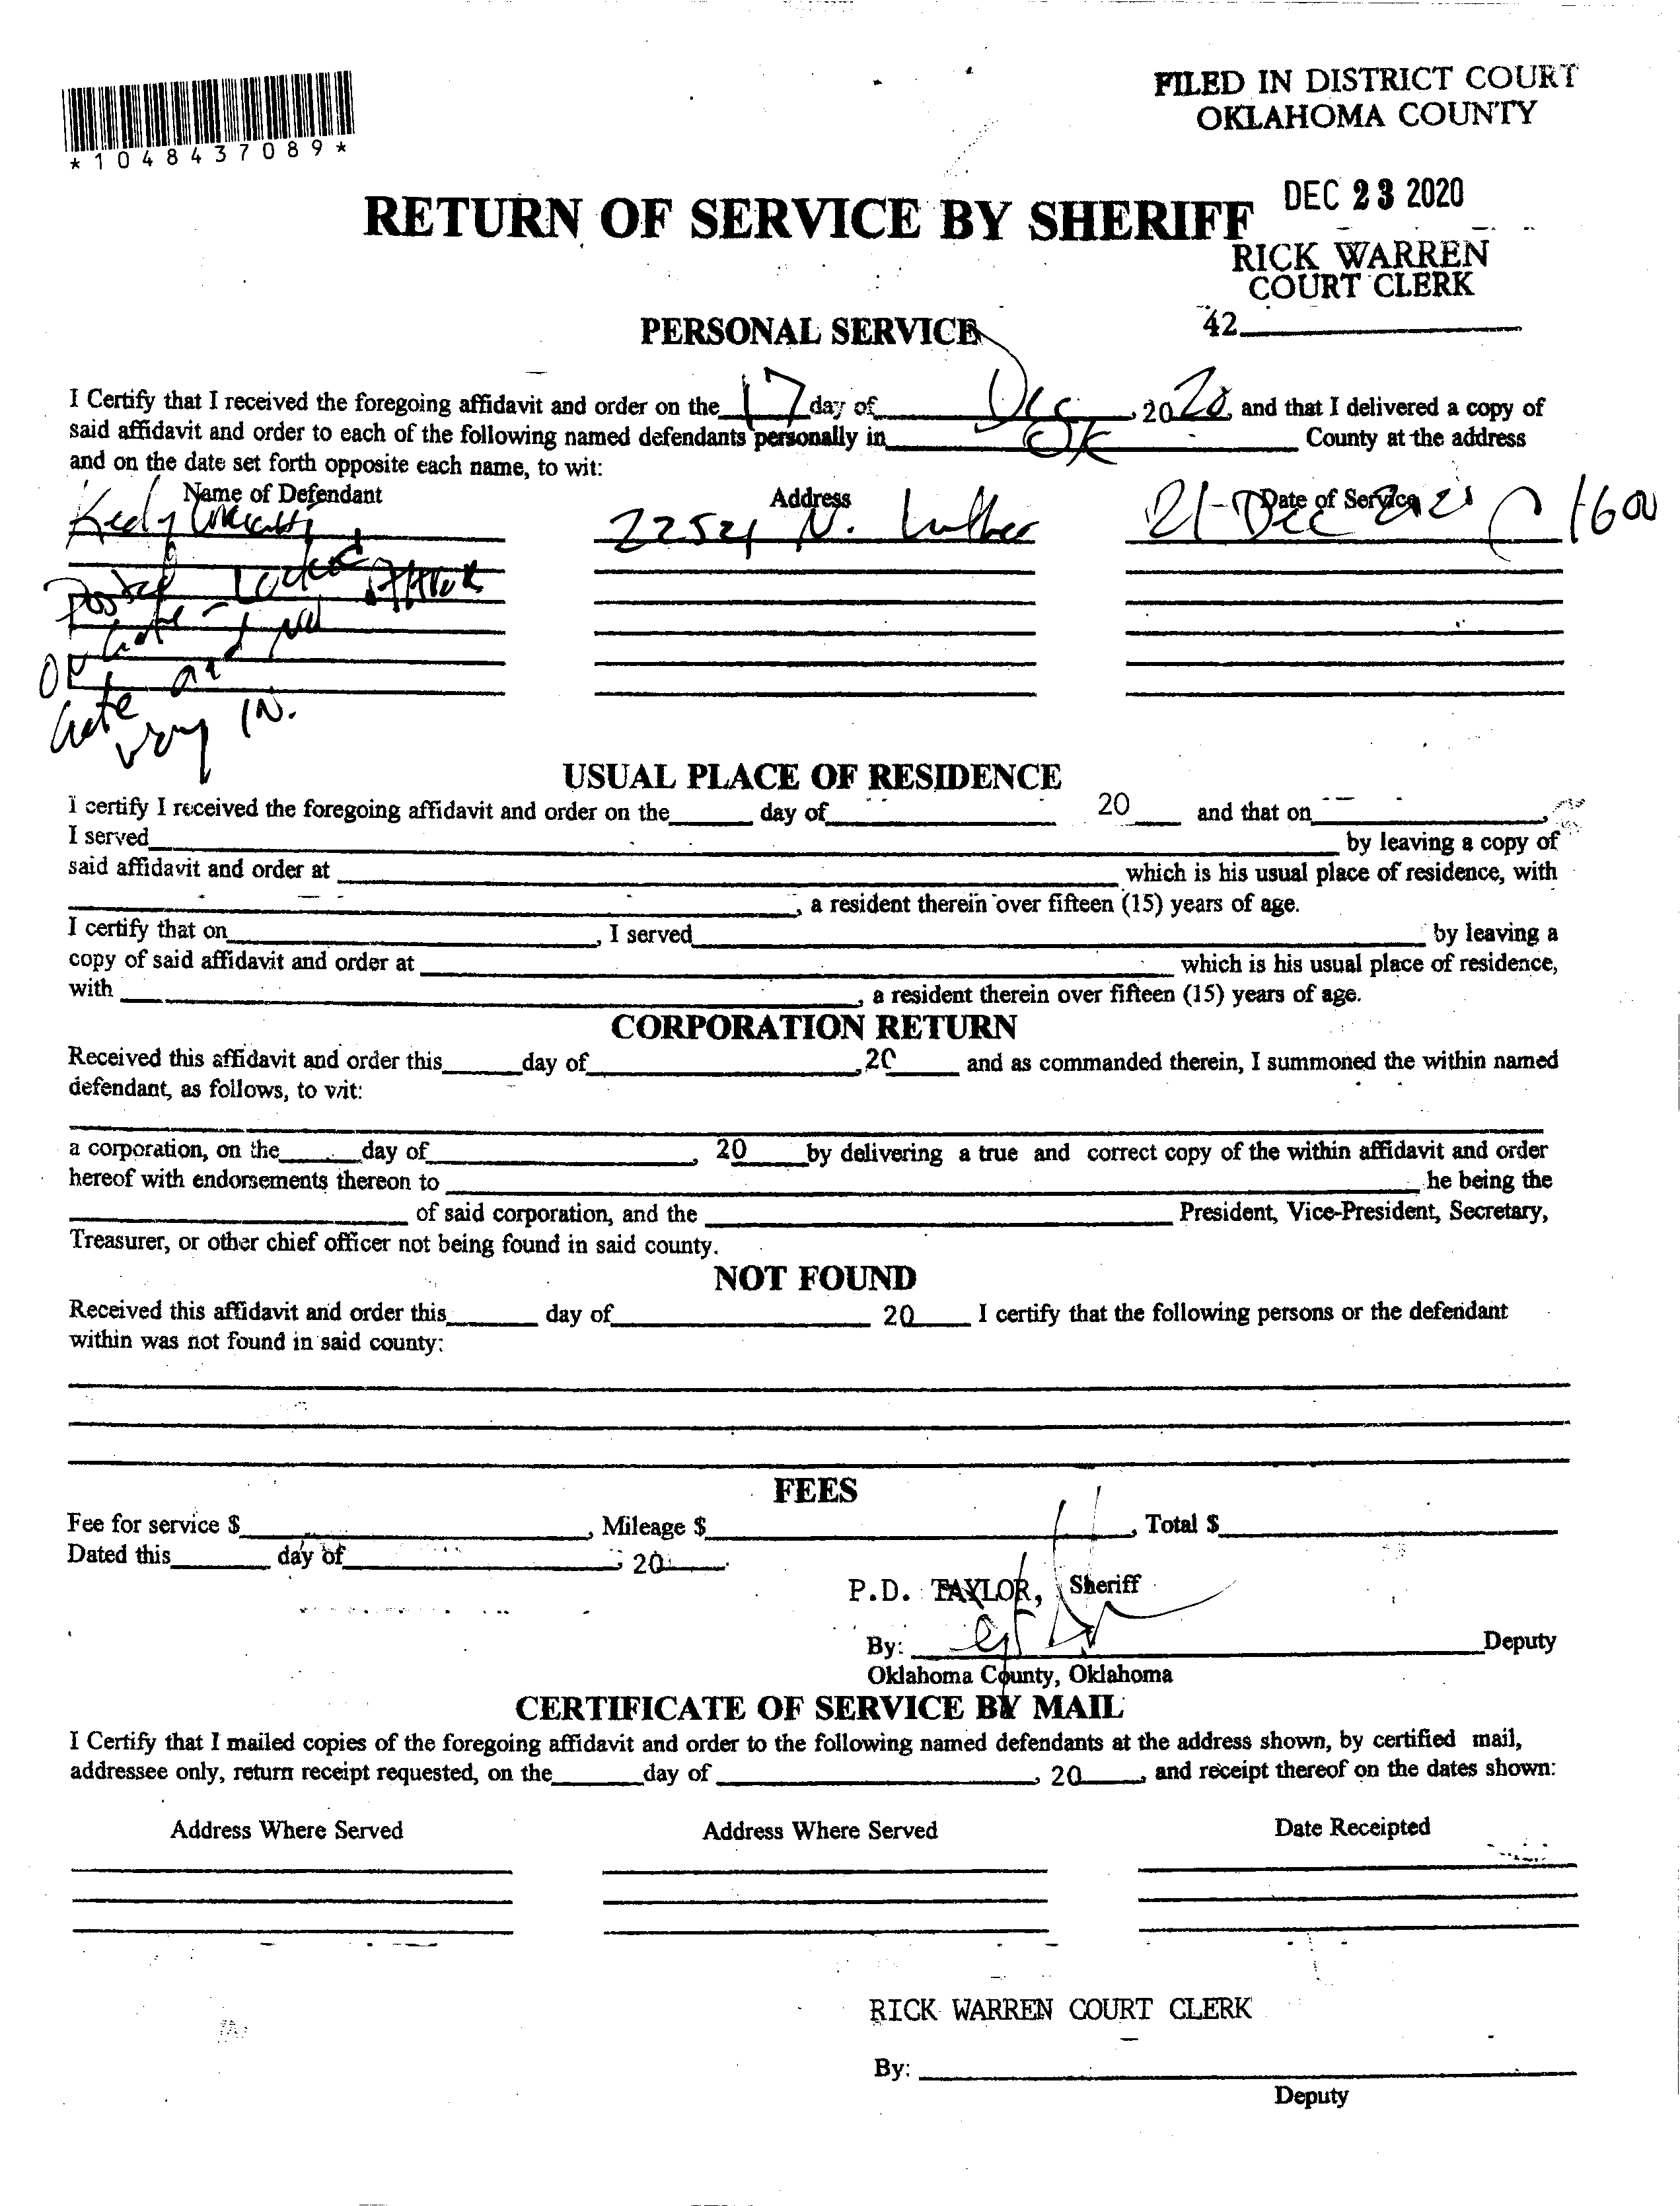 FILED IN DISTRICT COURT
OKLAHOMA COUNTY
*1048437089*
DEC 23 2020
RETURN OF SERVICE BY SHERIFF
RICK WARREN
COURT CLERK
42
PERSONAL SERVICE
I Certify that I received the foregoing affidavit and order on the 17 day of Dec, 2020, and that I delivered a copy of
said affidavit and order to each of the following named defendants personally in OK County at the address
and on the date set forth opposite each name, to wit:
Name of Defendant Address Date of Service
N. Luther 21-Dec 1600
Posted
Gate -
on
Gate
way IN.
USUAL PLACE OF RESIDENCE
I certify I received the foregoing affidavit and order on the day of 20 and that on
I served by leaving a copy of
said affidavit and order at which is his usual place of residence, with
, a resident therein over fifteen (15) years of age.
I certify that on , I served by leaving a
copy of said affidavit and order at which is his usual place of residence,
with , a resident therein over fifteen (15) years of age.
CORPORATION RETURN
Received this affidavit and order this day of ,20 and as commanded therein, I summoned the within named
defendant, as follows, to wit:
a corporation, on the day of , 20 by delivering a true and correct copy of the within affidavit and order
hereof with endorsements thereon to he being the
of said corporation, and the President, Vice-President, Secretary,
Treasurer, or other chief officer not being found in said county.
NOT FOUND
Received this affidavit and order this day of 20 I certify that the following persons or the defendant
within was not found in said county:
FEES
Fee for service $ , Mileage $ , Total $
Dated this day of , 20 .
P.D. TAYLOR, Sheriff
By: Deputy
Oklahoma County, Oklahoma
CERTIFICATE OF SERVICE BY MAIL
I Certify that I mailed copies of the foregoing affidavit and order to the following named defendants at the address shown, by certified mail,
addressee only, return receipt requested, on the day of , 20 , and receipt thereof on the dates shown:
Address Where Served Address Where Served Date Receipted
RICK WARREN COURT CLERK
By:
Deputy